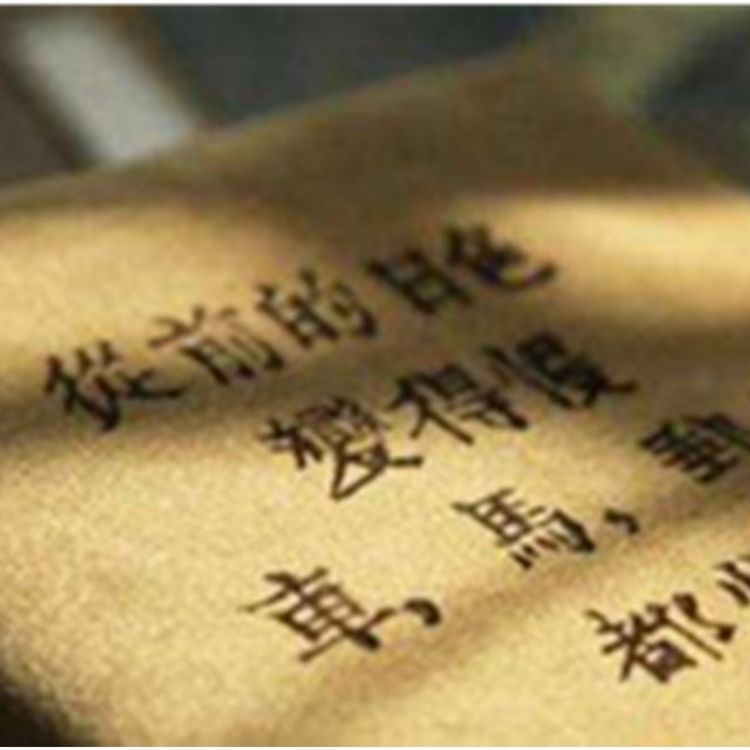 從前的日色
變得慢
車,馬,
都